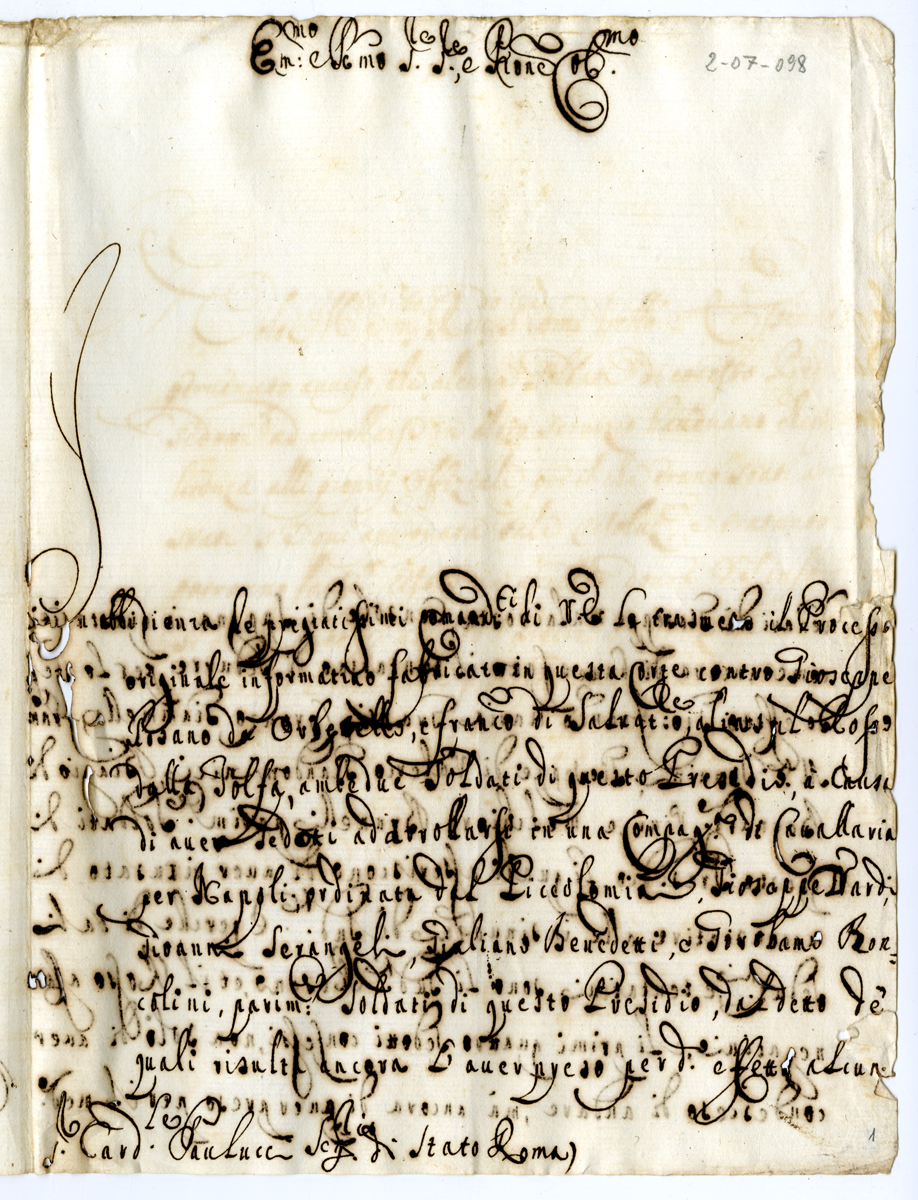 Em:mo e R.mo S.re S.re, e P.rone Col.mo
2-07-098
In ubbidienza de pregiatissimi Comandi di V. E. La trasmetto il Processo
originale informativo fabricato in questa Corte contro Gioseppe
Rosano da Orbetello, e Franc.o di Salvat:e, alias il Rosso
dalla Tolfa, ambedue Soldati di questo Presidio, a Causa
di aver sedotti ad arrollarsi in una Compag.a di Cavallaria
per Napoli, ordinata dal Piccolomini, Gioseppe Nardi,
Gioanne Serangeli, Giuliano Benedetti, e Girolamo Ron=
calini, parim.e Soldati di questo Presidio, dal detto de
quali risulta ancora L'aver preso per d.o effetto alcun
S. Card. Paulucci Seg.rio di Stato Roma)
1